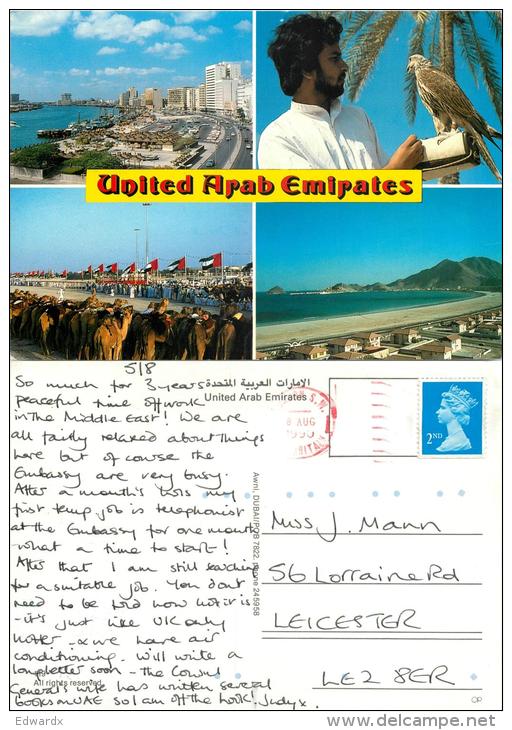 United Arab Emirates
5/8
So much for 3 years
peaceful time off work
in the Middle East! We are
all fairly relaxed about things
here but of course the
Embassy are very busy.
After a month's hols my
first temp job is telephonist
at the Embassy for one month
what a time to start!
After that I am still searching
for a suitable job. You don't
need to be told how hot it is
- it's just like UK only
hotter - & we have air
conditioning. Will write a
long letter soon - the Consul
General's wife has written several
books on UAE so I am off the hook! Judy x.
الإمارات العربية المتحدة
United Arab Emirates
8 AUG
1990
2ND
Awni, DUBAI/POB 7822, Phone 245958
Miss J. Mann
56 Lorraine Rd
LEICESTER
LE2 8ER
All rights reserved
Edwardx
delcampe.net